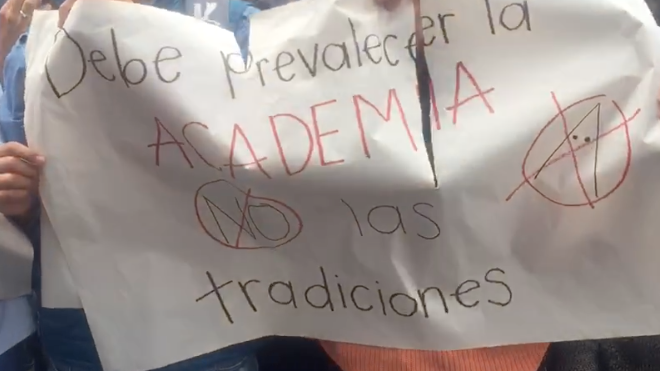 Debe prevalecer la
ACADEMIA
NO las
tradiciones